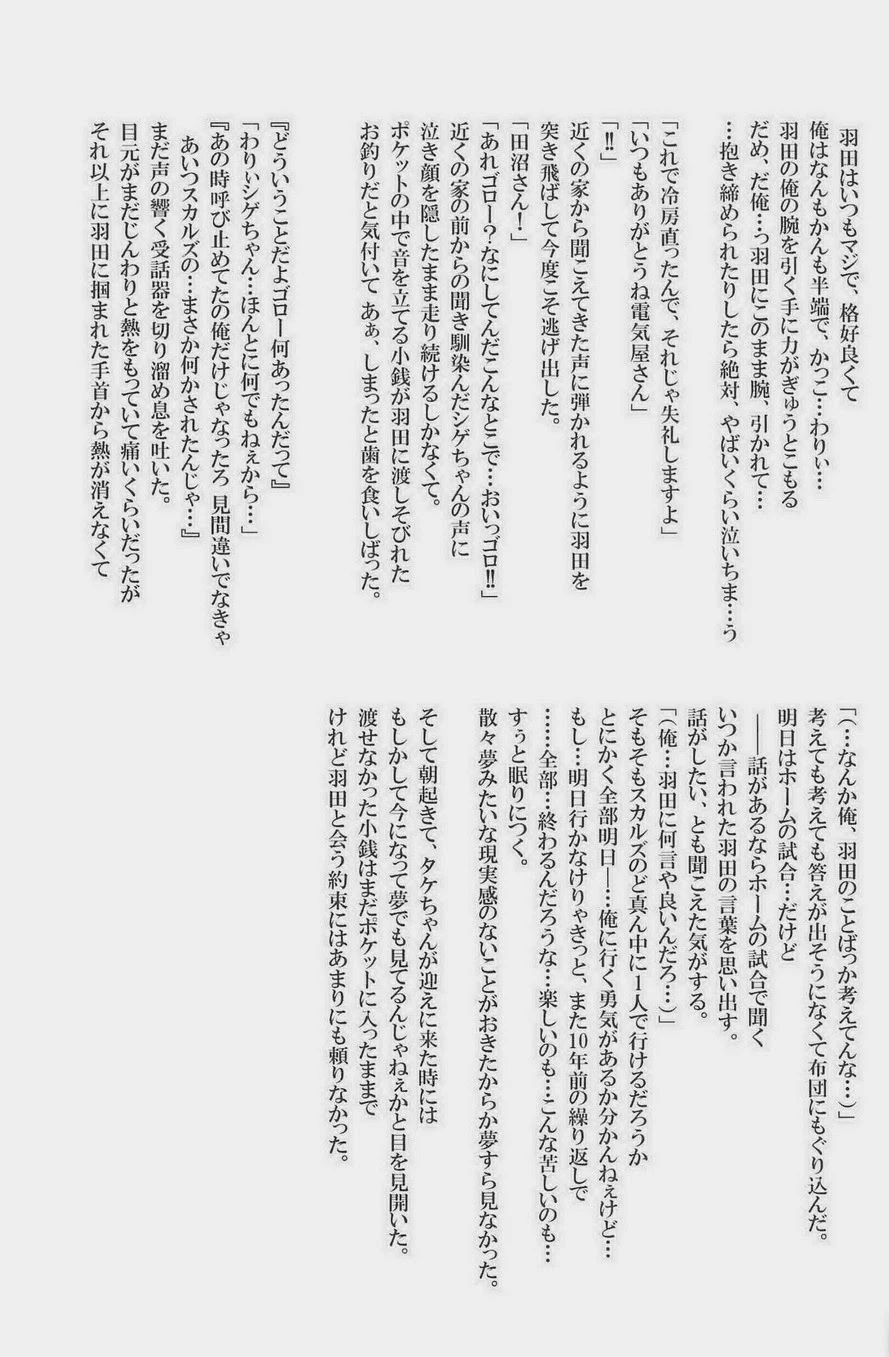 羽田はいつもマジで、格好良くて
俺はなんもかんも半端で、かっこ…わりぃ…
羽田の俺の腕を引く手に力がぎゅうとこもる
だめ、だ俺…っ羽田にこのまま腕、引かれて…
…抱き締められたりしたら絶対、やばいくらい泣いちま…う
「これで冷房直ったんで、それじゃ失礼しますよ」
「いつもありがとうね電気屋さん」
「!!」
近くの家から聞こえてきた声に弾かれるように羽田を
突き飛ばして今度こそ逃げ出した。
「田沼さん！」
「あれゴロー？なにしてんだこんなとこで…おいっゴロ!!」
近くの家の前からの聞き馴染んだシゲちゃんの声に
泣き顔を隠したまま走り続けるしかなくて。
ポケットの中で音を立てる小銭が羽田に渡しそびれた
お釣りだと気付いて あぁ、しまったと歯を食いしばった。
『どういうことだよゴロー何あったんだって』
「わりぃシゲちゃん…ほんとに何でもねぇから…」
『あの時呼び止めてたの俺だけじゃなったろ 見間違いでなきゃ
あいつスカルズの…まさか何かされたんじゃ…』
まだ声の響く受話器を切り溜め息を吐いた。
目元がまだじんわりと熱をもっていて痛いくらいだったが
それ以上に羽田に掴まれた手首から熱が消えなくて
「(…なんか俺、羽田のことばっか考えてんな…)」
考えても考えても答えが出そうになくて布団にもぐり込んだ。
明日はホームの試合…だけど
――話があるならホームの試合で聞く
いつか言われた羽田の言葉を思い出す。
話がしたい、とも聞こえた気がする。
「(俺…羽田に何言や良いんだろ…)」
そもそもスカルズのど真ん中に1人で行けるだろうか
とにかく全部明日―…俺に行く勇気があるか分かんねぇけど…
もし…明日行かなけりゃきっと、また10年前の繰り返しで
……全部…終わるんだろうな…楽しいのも…こんな苦しいのも…
すぅと眠りにつく。
散々夢みたいな現実感のないことがおきたからか夢すら見なかった。
そして朝起きて、タケちゃんが迎えに来た時には
もしかして今になって夢でも見てるんじゃねぇかと目を見開いた。
渡せなかった小銭はまだポケットに入ったままで
けれど羽田と会う約束にはあまりにも頼りなかった。